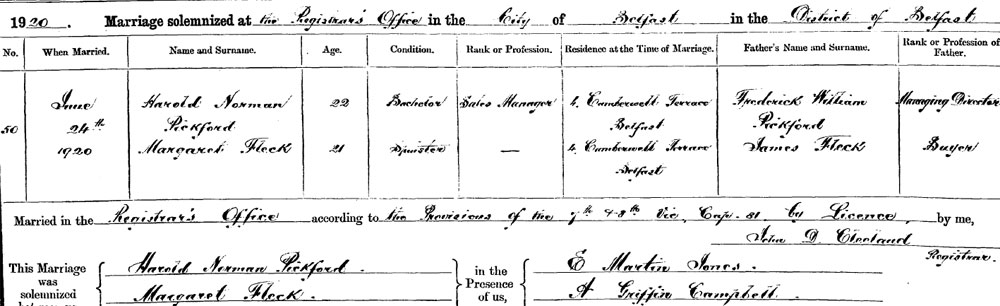 1920. Marriage solemnized at the Registrar's Office in the City of Belfast in the District of Belfast
No. When Married. Name and Surname. Age. Condition. Rank or Profession. Residence at the Time of Marriage. Father's Name and Surname. Rank or Profession of Father.
June Harold Norman 22 Bachelor Sales Manager 4. Camberwell Terrace Frederick William Managing Director
50 24th Pickford Belfast Pickford
1920 Margaret Fleck 21 Spinster — 4. Camberwell Terrace James Fleck Buyer
Belfast
Married in the Registrar's Office according to the Provisions of the 7th & 8th Vic, Cap. 81 by Licence, by me,
John D. Cleland
Registrar.
This Marriage was solemnized { Harold Norman Pickford. } in the Presence of us, { E Martin Jones.
Margaret Fleck. A Griffin Campbell.